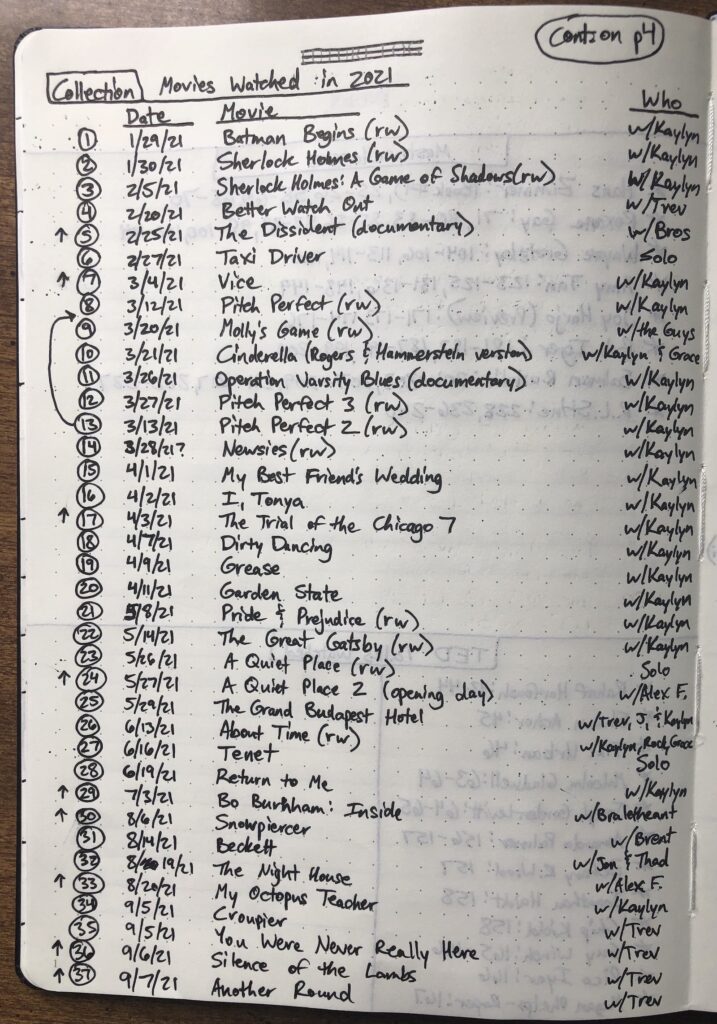 Cont on p4
Collection Movies Watched in 2021
Date Movie Who
1 1/29/21 Batman Begins (rw) w/Kaylyn
2 1/30/21 Sherlock Holmes (rw) w/Kaylyn
3 2/5/21 Sherlock Holmes: A Game of Shadows (rw) w/Kaylyn
4 2/20/21 Better Watch Out w/Trev
↑ 5 2/25/21 The Dissident (documentary) w/Bros
6 2/27/21 Taxi Driver Solo
↑ 7 3/4/21 Vice w/Kaylyn
8 3/12/21 Pitch Perfect (rw) w/Kaylyn
9 3/20/21 Molly's Game (rw) w/the Guys
10 3/21/21 Cinderella (Rogers & Hammerstein version) w/Kaylyn & Grace
11 3/26/21 Operation Varsity Blues (documentary) w/Kaylyn
12 3/27/21 Pitch Perfect 3 (rw) w/Kaylyn
13 3/13/21 Pitch Perfect 2 (rw) w/Kaylyn
14 3/28/21? Newsies (rw) w/Kaylyn
15 4/1/21 My Best Friend's Wedding w/Kaylyn
16 4/2/21 I, Tonya w/Kaylyn
↑ 17 4/3/21 The Trial of the Chicago 7 w/Kaylyn
18 4/7/21 Dirty Dancing w/Kaylyn
19 4/9/21 Grease w/Kaylyn
20 4/11/21 Garden State w/Kaylyn
21 5/8/21 Pride & Prejudice (rw) w/Kaylyn
22 5/14/21 The Great Gatsby (rw) w/Kaylyn
23 5/26/21 A Quiet Place (rw) Solo
↑ 24 5/27/21 A Quiet Place 2 (opening day) w/Alex F.
25 5/29/21 The Grand Budapest Hotel w/Trev, J, & Kaylyn
26 6/13/21 About Time (rw) w/Kaylyn, Rock, Grace
27 6/16/21 Tenet Solo
28 6/19/21 Return to Me w/Kaylyn
↑ 29 7/3/21 Bo Burnham: Inside
↑ 30 8/6/21 Snowpiercer w/Brent
31 8/14/21 Beckett w/Jon & Thad
32 8/19/21 The Night House w/Alex F.
↑ 33 8/20/21 My Octopus Teacher w/Kaylyn
34 9/5/21 Croupier w/Trev
35 9/5/21 You Were Never Really Here w/Trev
↑ 36 9/6/21 Silence of the Lambs w/Trev
↑ 37 9/7/21 Another Round w/Trev